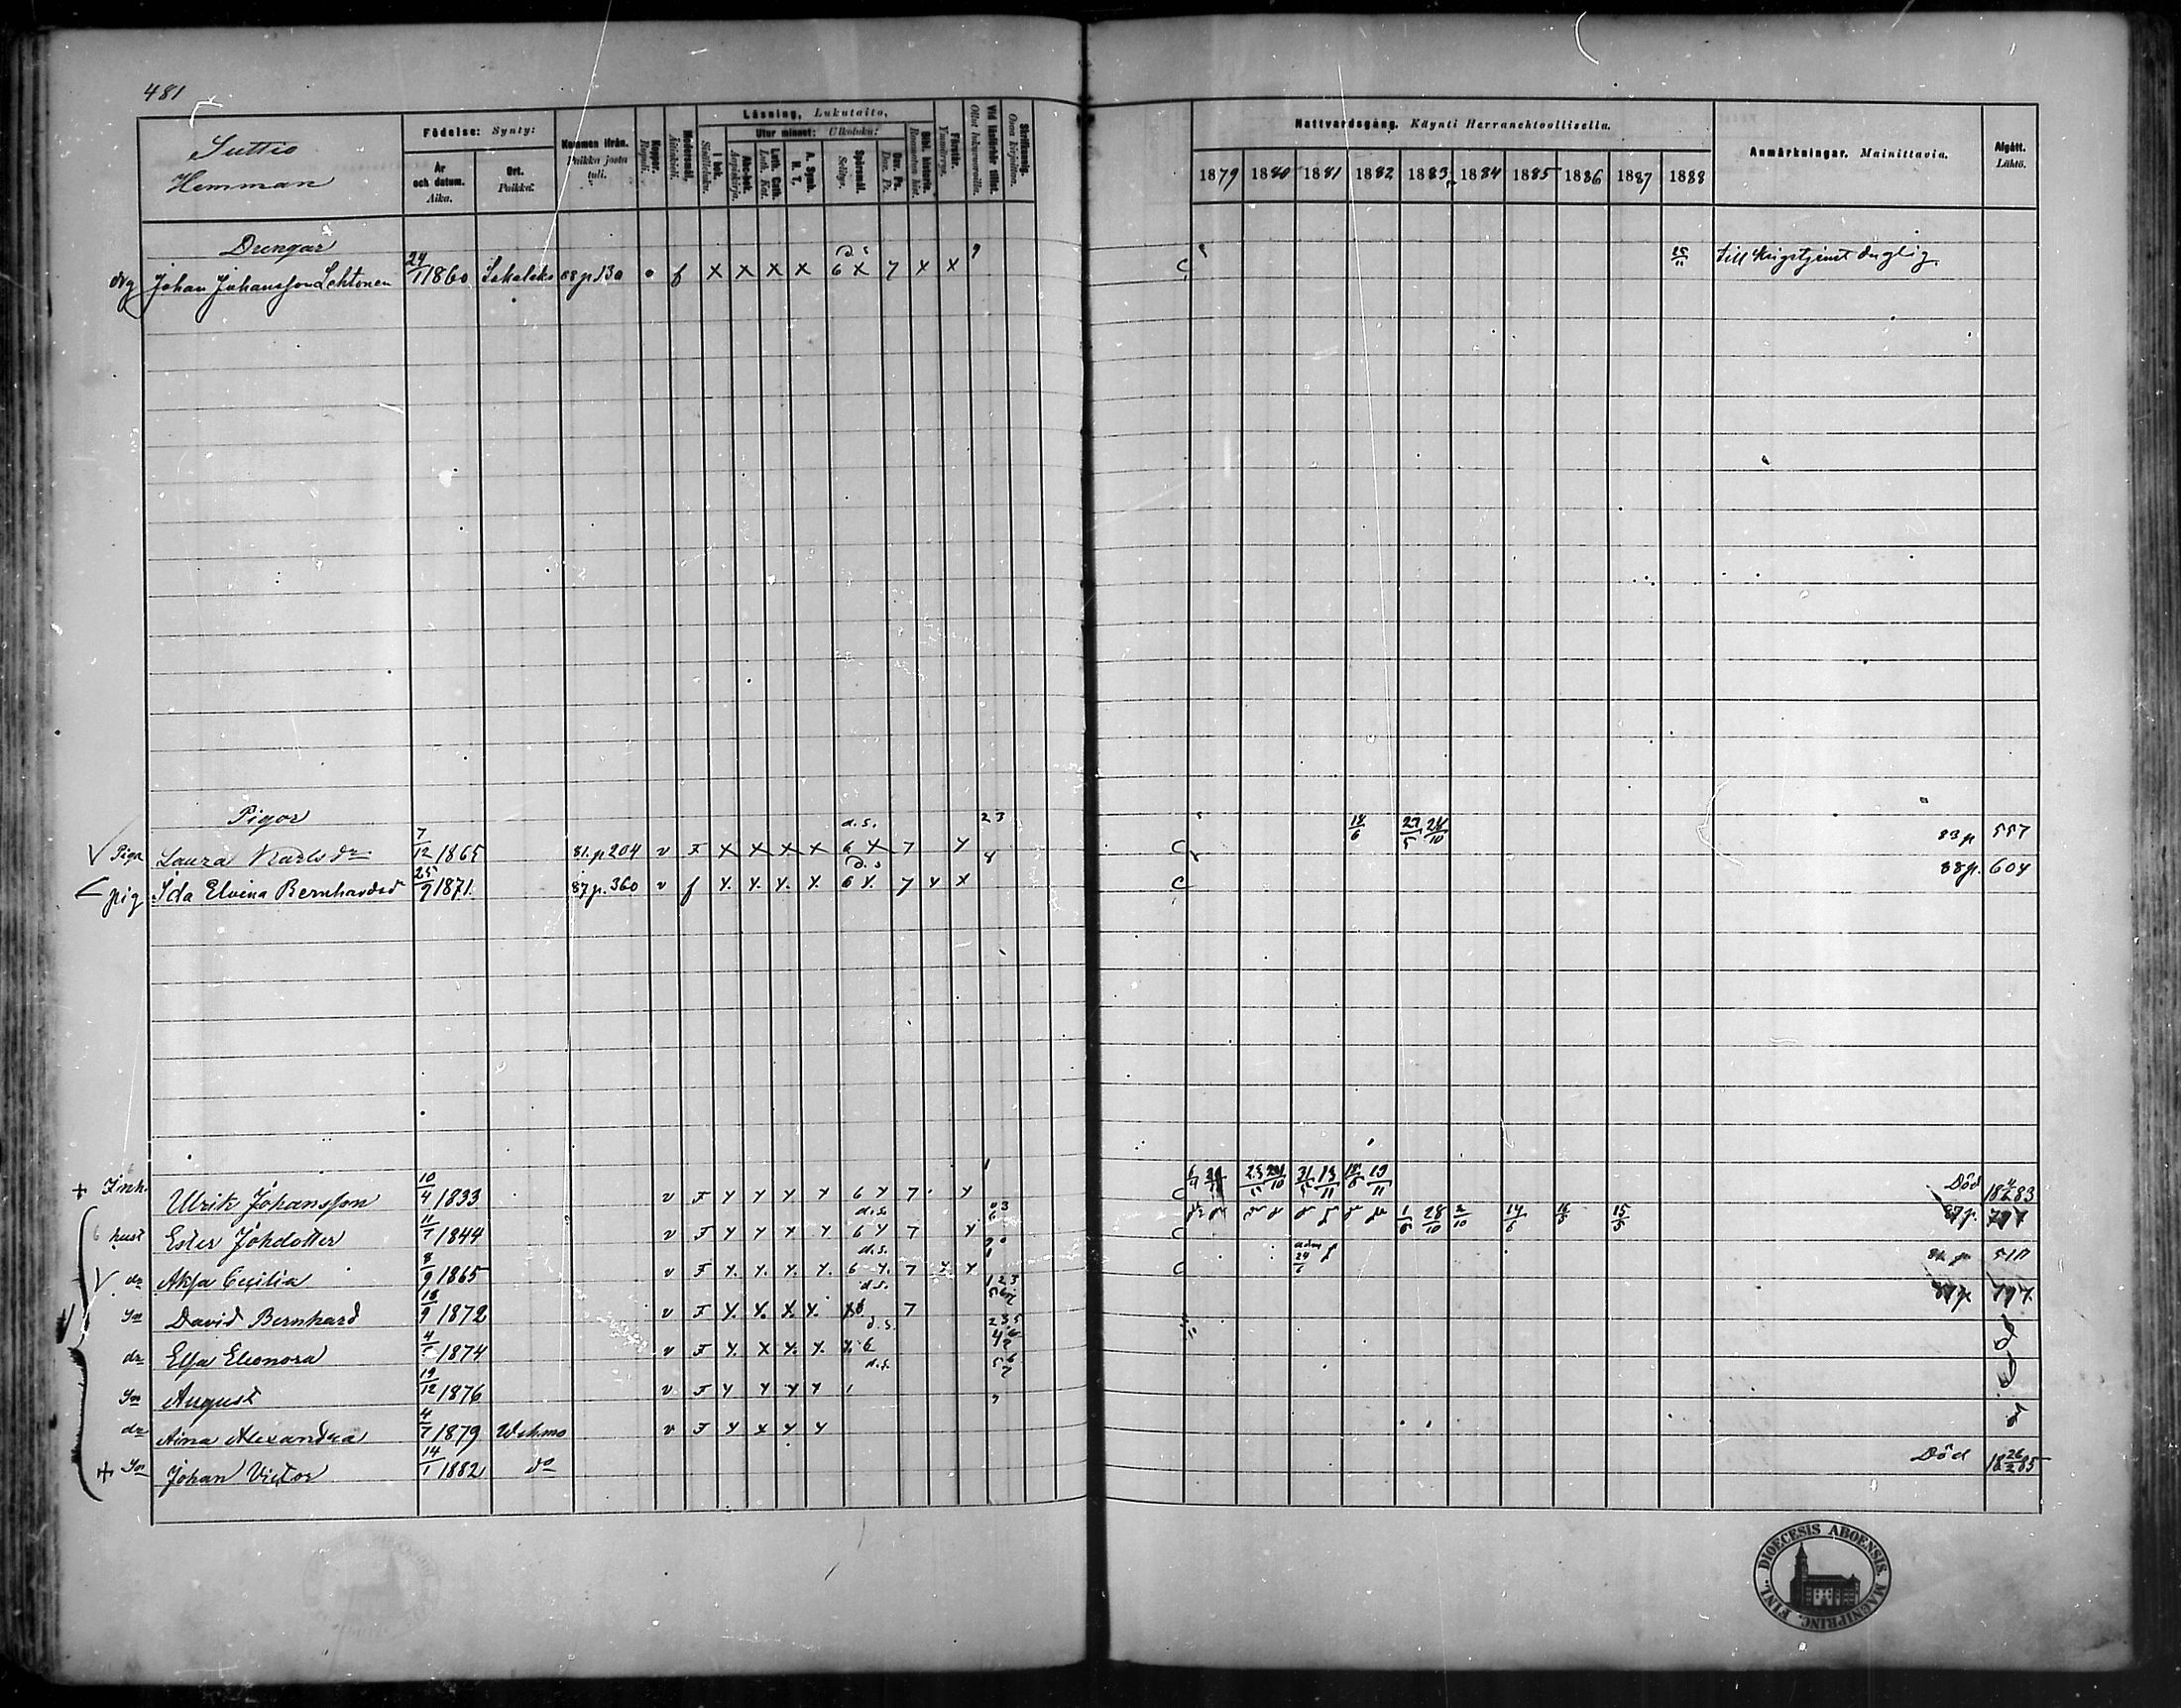 481
Suttio
Hemman
Födelse: Synty:
År och datum. Aika.
Ort. Paikka.
Kommen ifrån. Paikka josta tuli.
Koppor. Rupuli.
Modersmål. Äitinkieli.
Läsning, Lukutaito,
I bok. Sisältäluku.
Utur minnet: Ulkoluku:
Abc-bok. Aapiskirja.
Luth. Cath. Luth. Kat.
A. Symb. H. T.
Spörsmål. Selitys.
Dav. Ps. Dav. Ps.
Bibl. historie. Raamatun hist.
Förstår. Ymmärrys.
Vid läsförhör tillst. Ollut lukuvuorolla.
Skrifkunnig. Osaa kirjoittaa.
Nattvardsgång. Käynti Herranehtoollisella.
1879 1880 1881 1882 1883 1884 1885 1886 1887 1888
Anmärkningar. Mainittavia.
Afgått. Lähtö.
Drengar
drg Johan Johansson Lehtonen 24/1 1860 88 p. 130 f X X X X d. s. 6 X 7 X X 9 C 25/11 till krigstjenst duglig.
Pigor
Piga Laura Karlsdr 7/12 1865 81. p 204 v F X X X X d. s. 6 X 7 Y 2 3 C 18/6 27/5 28/10 83 p 557
pig Ida Elvina Bernhardsd 25/9 1871. 87 p. 360 v f Y. Y. Y. Y. d. s 6 Y. 7 Y X 8 C 88 p. 604
+ Inh. Ulrik Johansson 10/4 1833 v F Y Y Y Y 6 Y 7 Y 1 C Död 18 4/6 83
hust Ester Johdotter 11/7 1844 v F Y Y Y Y d. s. 6 Y 7 Y C 1/6 28/10 2/10 14/6 16/5 15/5 87 p. 797
dr Akſa Cecilia 8/9 1865 v F Y. Y. Y. Y. d. s. 6 Y. 7 Y Y C adm 24/6 510
son David Bernhard 18/9 1872 v F Y. Y. X. Y. d. s. 7 1 2 3 5 6 7 87 p 797
dr Elſa Eleonora 1874 v F Y. X Y. Y. d. s. 6 2 3 5 4 6 7 d
son August 19/12 1876 v F Y Y Y Y d. s. 5 6 7
dr Aina Alexandra 4/7 1879 Wehmo v F Y X Y Y 7
+ son Johan Victor 14/1 1882 do Död 18 26/2 85
FINL. DIOECESIS ABOENSIS. MAGNIPRINC.